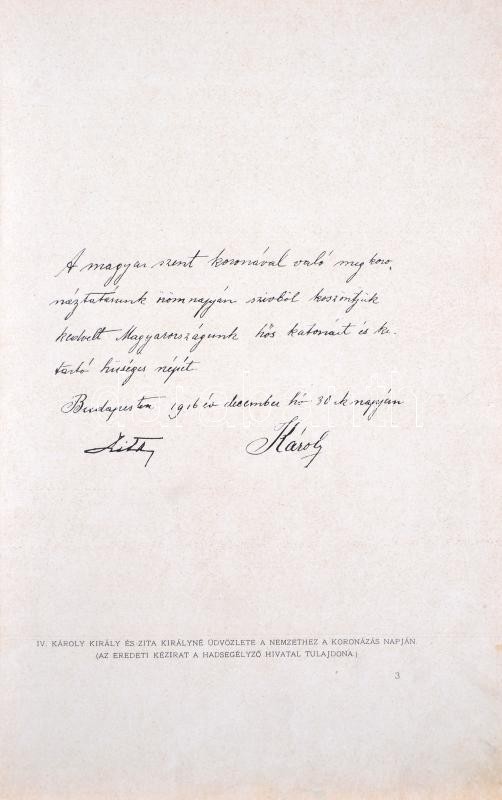 A magyar szent koronával való megkoro-
náztatásunk örömnapján szivből köszöntjük
kedvelt Magyarországunk hős katonáit és ki-
tartó hűséges népét.
Budapesten 1916 év december hó 30-ik napján
Zita Károly
IV. KÁROLY KIRÁLY ÉS ZITA KIRÁLYNÉ ÜDVÖZLETE A NEMZETHEZ A KORONÁZÁS NAPJÁN.
(AZ EREDETI KÉZIRAT A HADSEGÉLYZŐ HIVATAL TULAJDONA.)
3